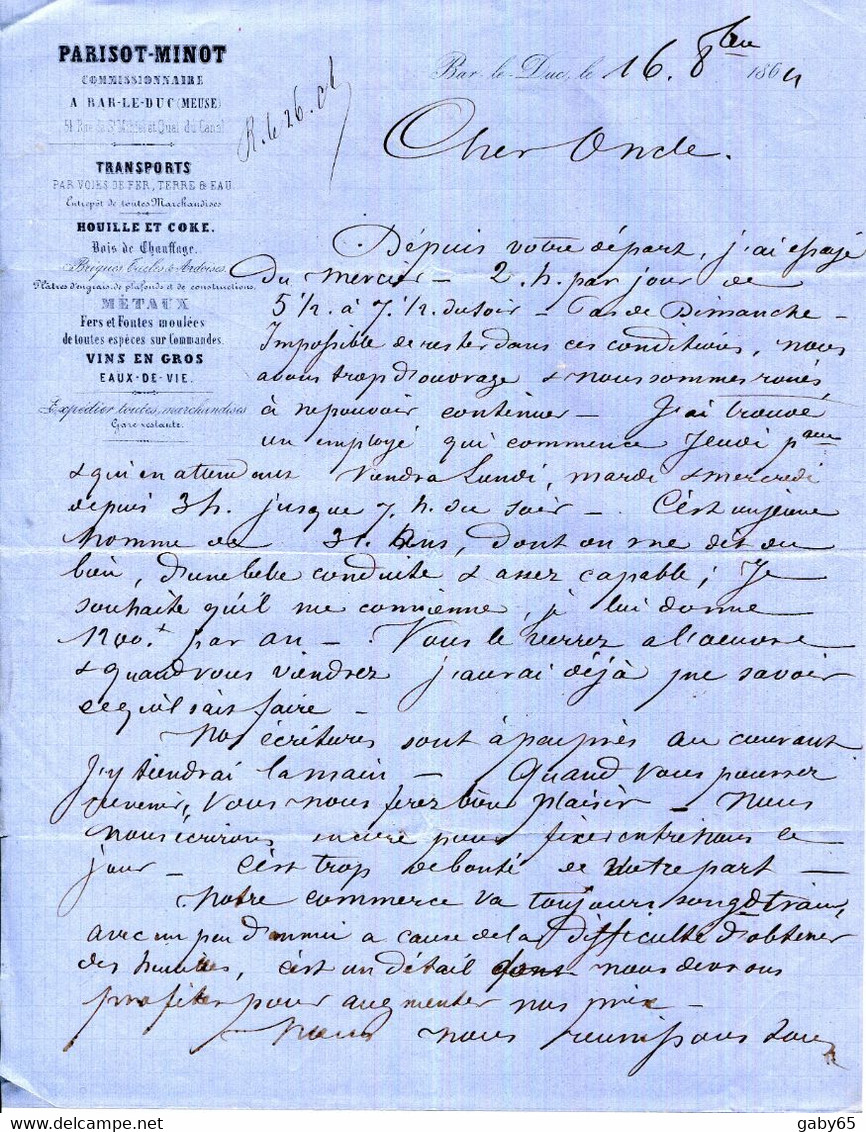 PARISOT-MINOT
COMMISSIONNAIRE
A BAR-LE-DUC (MEUSE)
51 Rue de St Mihiel et Quai du Canal
TRANSPORTS
PAR VOIES DE FER, TERRE & EAU
Entrepôt de toutes Marchandises
HOUILLE ET COKE.
Bois de Chauffage.
Briques Tuiles & Ardoises
Plâtres d'engrais, de plafonds et de constructions.
MÉTAUX
Fers et Fontes moulées
de toutes espèces sur Commandes.
VINS EN GROS
EAUX-DE-VIE.
Expédier toutes marchandises
Gare restante.
R. le 26. 8b
Bar-le-Duc, le 16. 8bre 1864
Cher Oncle.
Dépuis votre départ, j'ai essayé
Du mercier - 2. h. par jour de
5 1/2. à 7. 1/2. du soir - Pas de Dimanche -
Impossible de rester dans ces conditions, nous
avons trop d'ouvrage & nous sommes roués,
à ne pouvoir continuer - J'ai trouvé
un employé qui commence Jeudi pain
& qui en attendant Viendra Lundi, mardi & mercredi
depuis 3 h. jusque 7. h. du soir - C'est un jeune
homme de 31. Ans, dont on me dit du
bien, d'une belle conduite & assez capable; Je
souhaite qu'il me convienne, je lui donne
1200.f par an - Vous le verrez a l'œuvre
& quand vous viendrez j'aurai déjà pu savoir
ce qu'il sait faire -
Nos écritures sont à peu près au courant
J'y tiendrai la main - Quand vous pourrez
revenir, Vous nous ferez bien plaisir - Nous
nous écrirons encore pour fixer entre nous le
jour - C'est trop de bonté de votre part -
Notre commerce va toujours son gd train,
avec un peu d'ennui a cause de la difficulté d'obtenir
des houilles, c'est un détail dont nous devrons
profiter pour augmenter nos prix -
Nous nous réunissons tous
gaby65